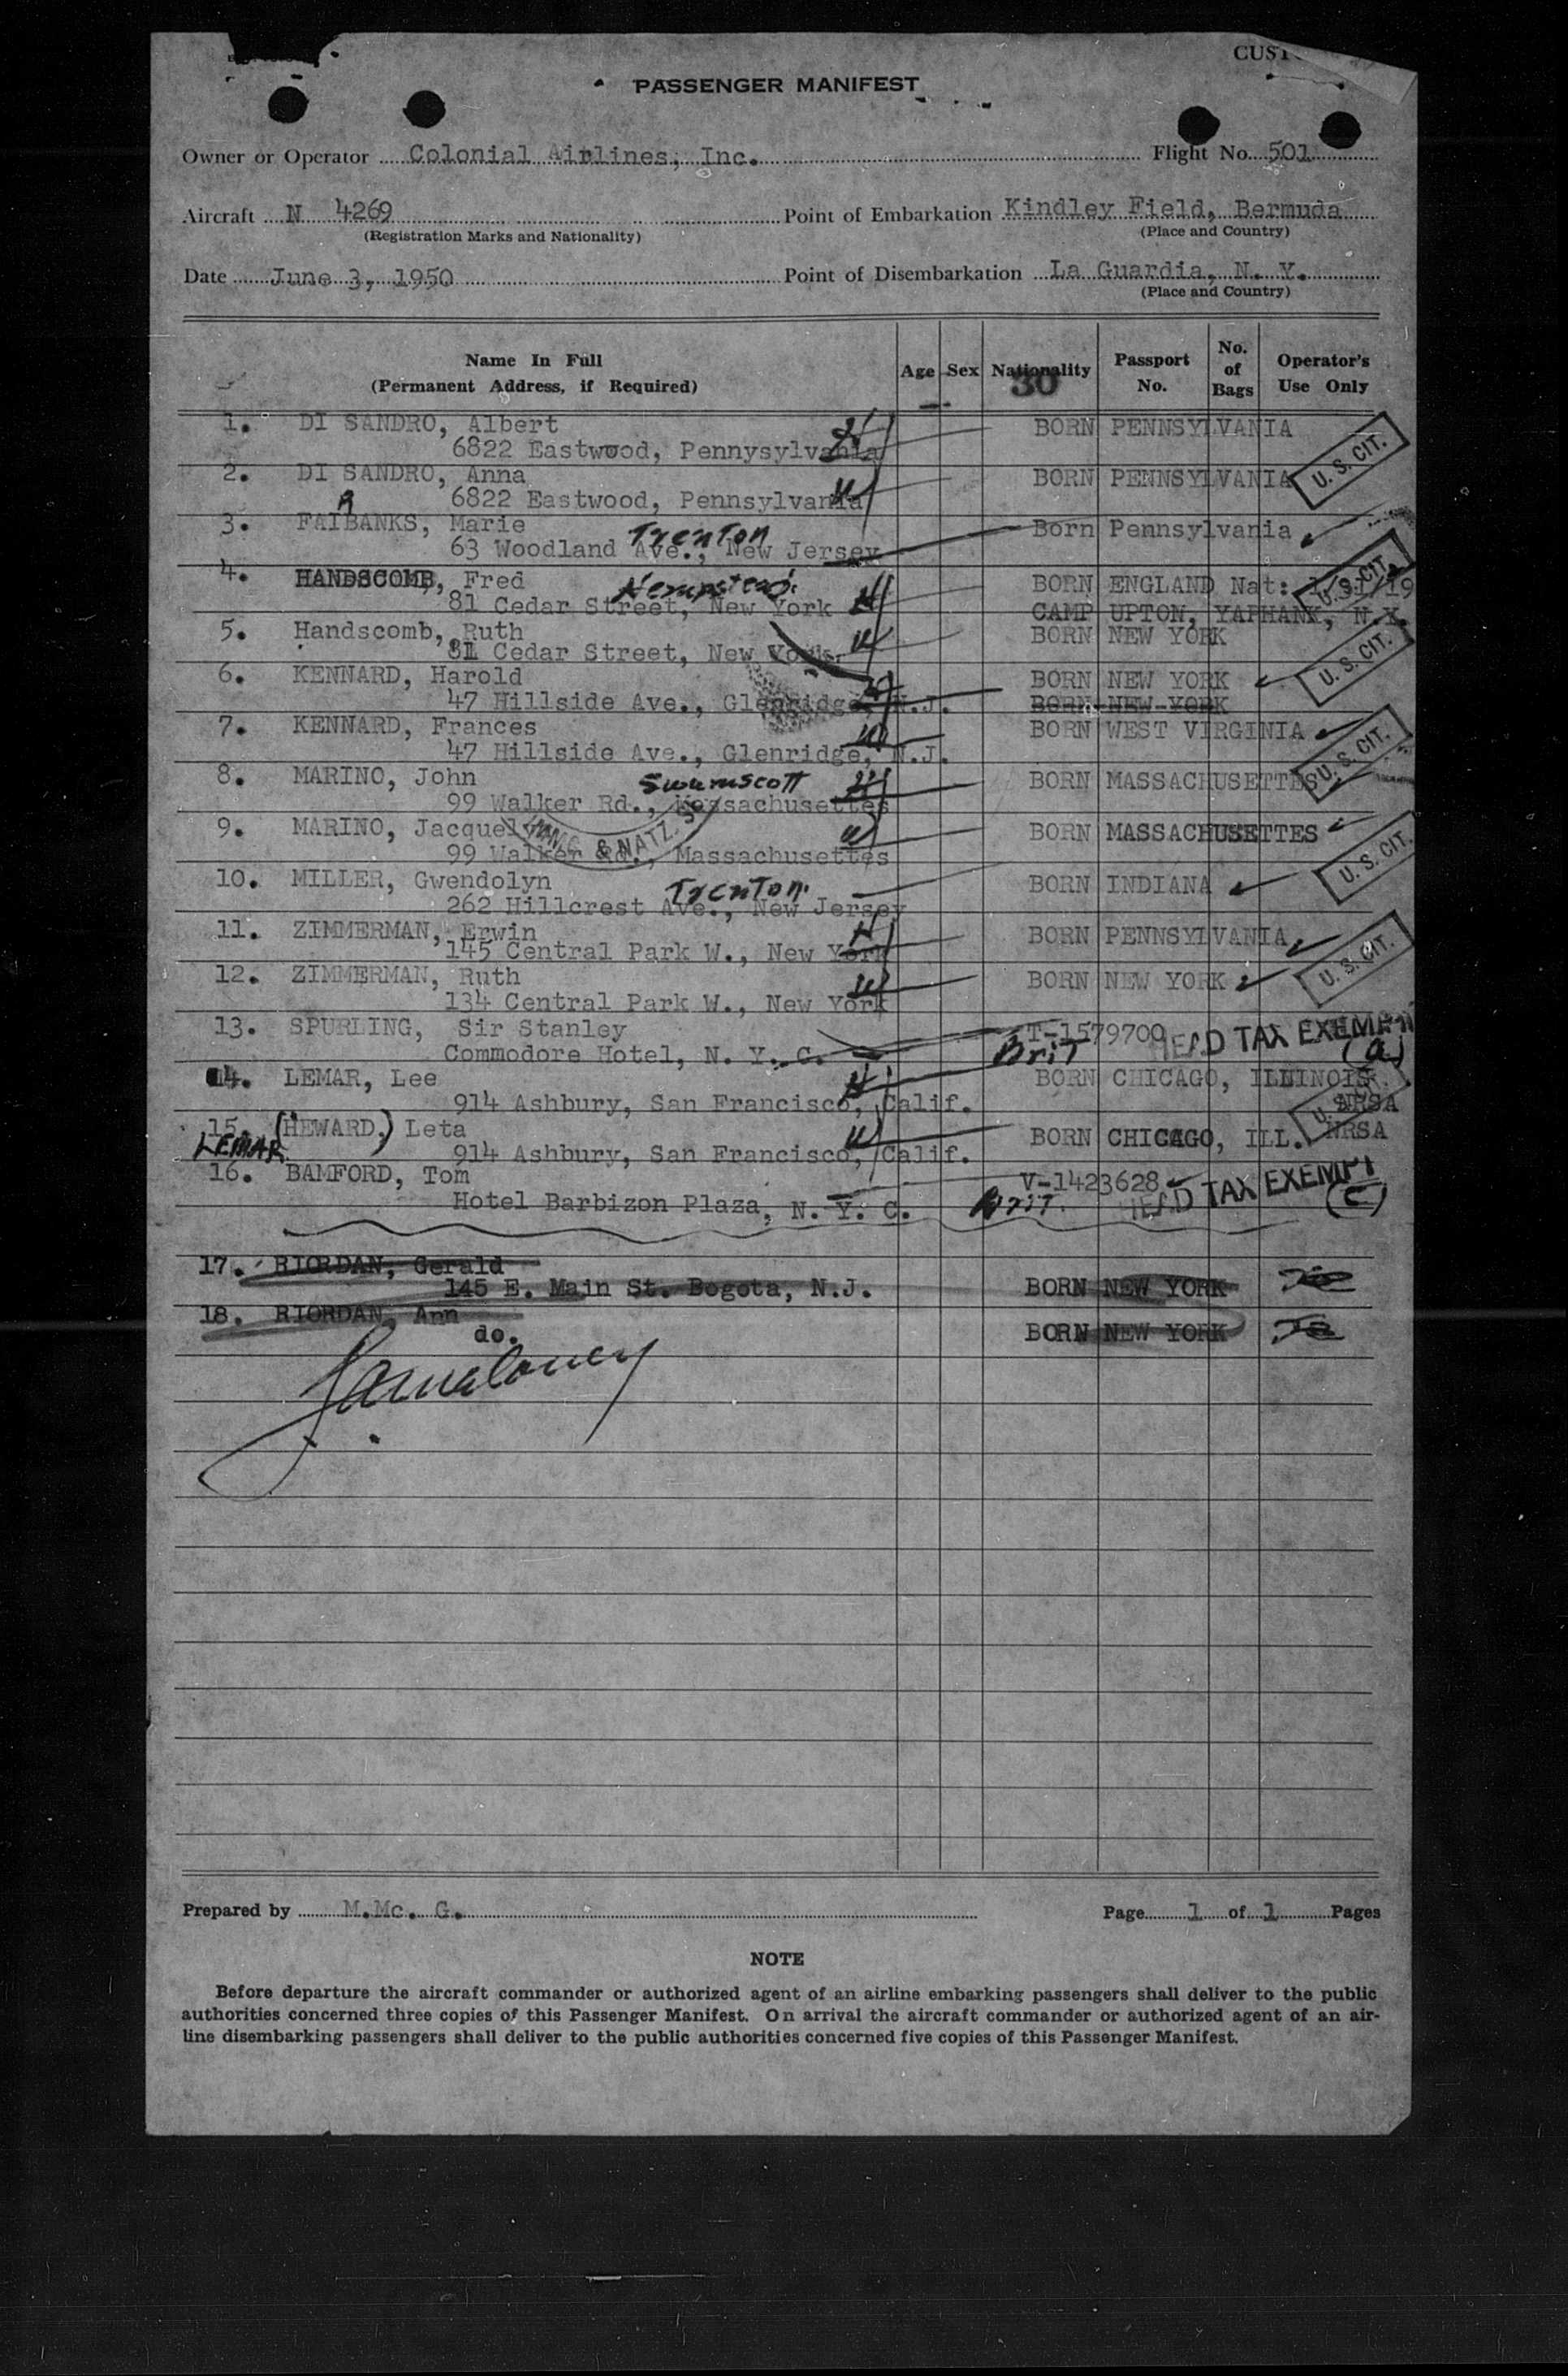 CUST
PASSENGER MANIFEST
Owner or Operator Colonial Airlines, Inc. Flight No. 501
Aircraft N 4269 Point of Embarkation Kindley Field, Bermuda
(Registration Marks and Nationality) (Place and Country)
Date June 3, 1950 Point of Disembarkation La Guardia, N. Y.
(Place and Country)
Name In Full (Permanent Address, if Required) Age Sex Nationality Passport No. No. of Bags Operator's Use Only
30
1. DI SANDRO, Albert BORN PENNSYLVANIA
6822 Eastwood, Pennysylvania
U. S. CIT.
2. DI SANDRO, Anna BORN PENNSYLVANIA
R 6822 Eastwood, Pennsylvania
3. FAIBANKS, Marie Trenton Born Pennsylvania
63 Woodland Ave., New Jersey
U. S. CIT.
4. HANDSCOMB, Fred Hempstead BORN ENGLAND Nat: 1/31/19
81 Cedar Street, New York CAMP UPTON, YAPHANK, N.Y.
5. Handscomb, Ruth BORN NEW YORK
81 Cedar Street, New York
U. S. CIT.
6. KENNARD, Harold BORN NEW YORK
47 Hillside Ave., Glenridge, N.J. BORN NEW YORK
7. KENNARD, Frances BORN WEST VIRGINIA
47 Hillside Ave., Glenridge, N.J.
U. S. CIT.
8. MARINO, John Swamscott BORN MASSACHUSETTES
99 Walker Rd., Massachusettes
9. MARINO, Jacquelyn BORN MASSACHUSETTES
IMMG & NATZ. S
99 Walker Rd., Massachusettes
U. S. CIT.
10. MILLER, Gwendolyn Trenton. BORN INDIANA
262 Hillcrest Ave., New Jersey
11. ZIMMERMAN, Erwin BORN PENNSYLVANIA
145 Central Park W., New York
U. S. CIT.
12. ZIMMERMAN, Ruth BORN NEW YORK
134 Central Park W., New York
13. SPURLING, Sir Stanley T-1579700 HEAD TAX EXEMPT
Commodore Hotel, N. Y. C. Brit (a)
14. LEMAR, Lee BORN CHICAGO, ILLINOIS
914 Ashbury, San Francisco, Calif. NRSA
15. (HEWARD,) Leta BORN CHICAGO, ILL. NRSA
LEMAR 914 Ashbury, San Francisco, Calif.
16. BAMFORD, Tom V-1423628 HEAD TAX EXEMPT
Hotel Barbizon Plaza, N. Y. C. Brit. (c)
17. RIORDAN, Gerald
145 E. Main St. Bogota, N.J. BORN NEW YORK
18. RIORDAN, Ann
do. BORN NEW YORK
Prepared by M.Mc. G. Page 1 of 1 Pages
NOTE
Before departure the aircraft commander or authorized agent of an airline embarking passengers shall deliver to the public
authorities concerned three copies of this Passenger Manifest. On arrival the aircraft commander or authorized agent of an air-
line disembarking passengers shall deliver to the public authorities concerned five copies of this Passenger Manifest.